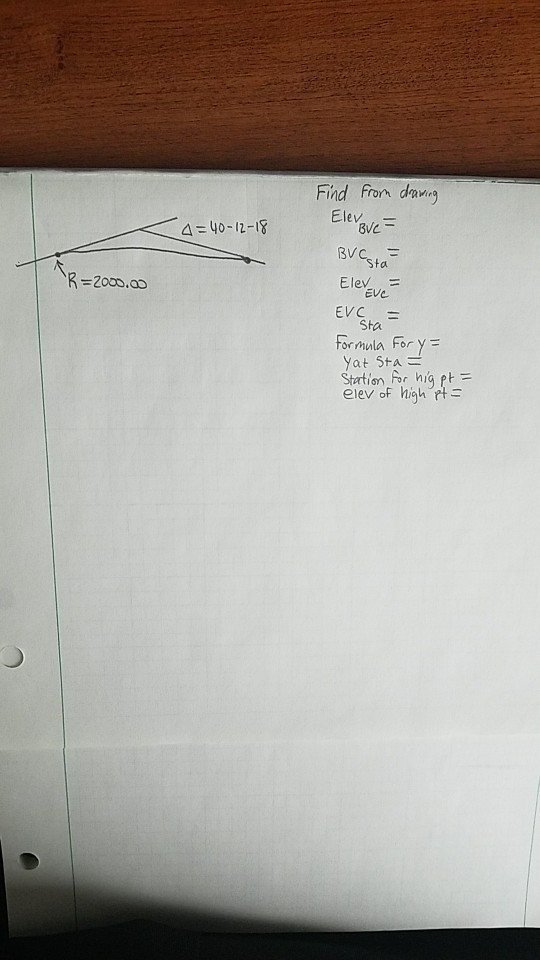 Find From drawing
Elev BVC =
Δ = 40-12-18
BVC Sta =
R = 2000.00
Elev EVC =
EVC Sta =
Formula For y =
y at Sta =
Station for hig pt =
elev of high pt =